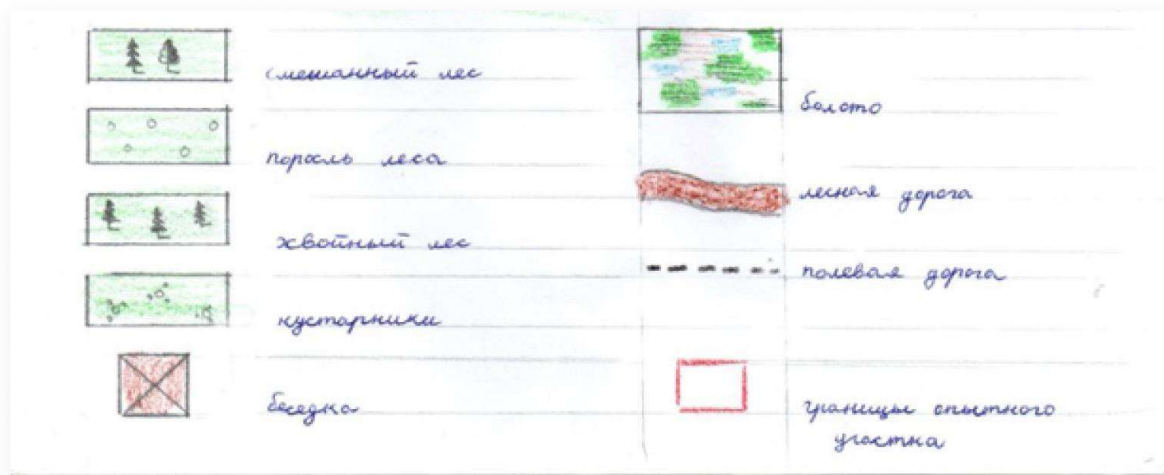 смешанный лес
поросль леса
хвойный лес
кустарники
беседка
болото
лесная дорога
полевая дорога
границы опытного
участка